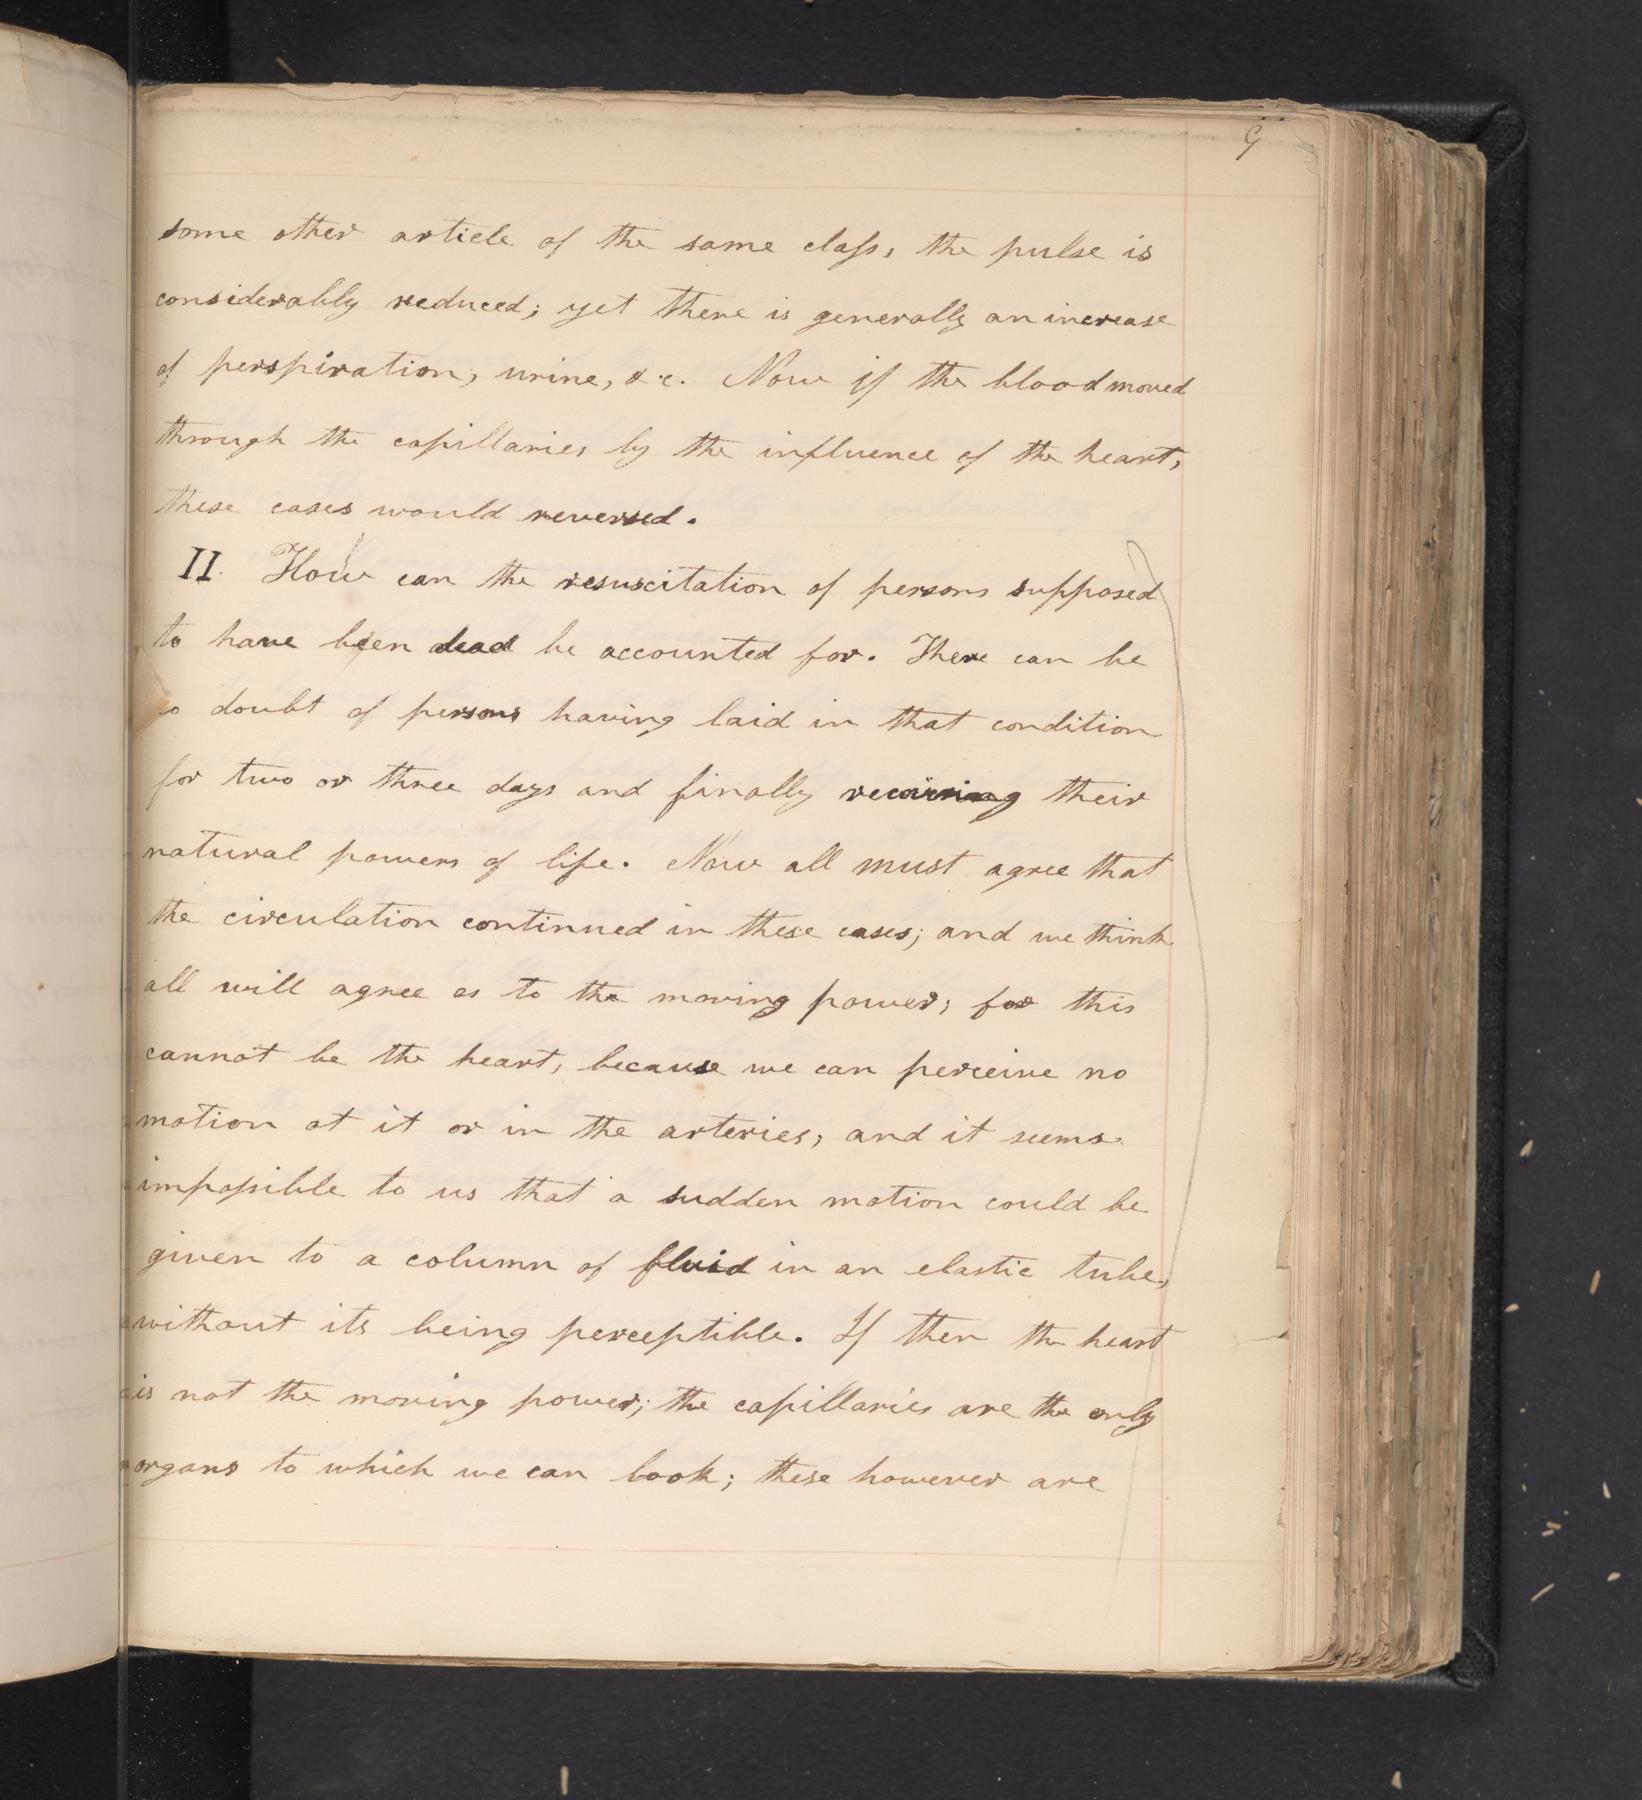 9
some other article of the same class, the pulse is
considerably reduced; yet there is generally an increase
of perspiration, urine, &c. Now if the blood moved
through the capillaries by the influence of the heart,
these cases would reversed.
II. How can the resuscitation of persons supposed
to have been dead be accounted for. There can be
o doubt of persons having laid in that condition
for two or three days and finally their
natural powers of life. Now all must agree that
the circulation continued in these cases; and we think
all will agree as to the moving power; for this
cannot be the heart, because we can perceive no
motion at it or in the arteries; and it seems
impossible to us that a sudden motion could be
given to a column of fluid in an elastic tube,
without its being perceptible. If then the heart
is not the moving power; the capillaries are the only
organs to which we can look; these however are